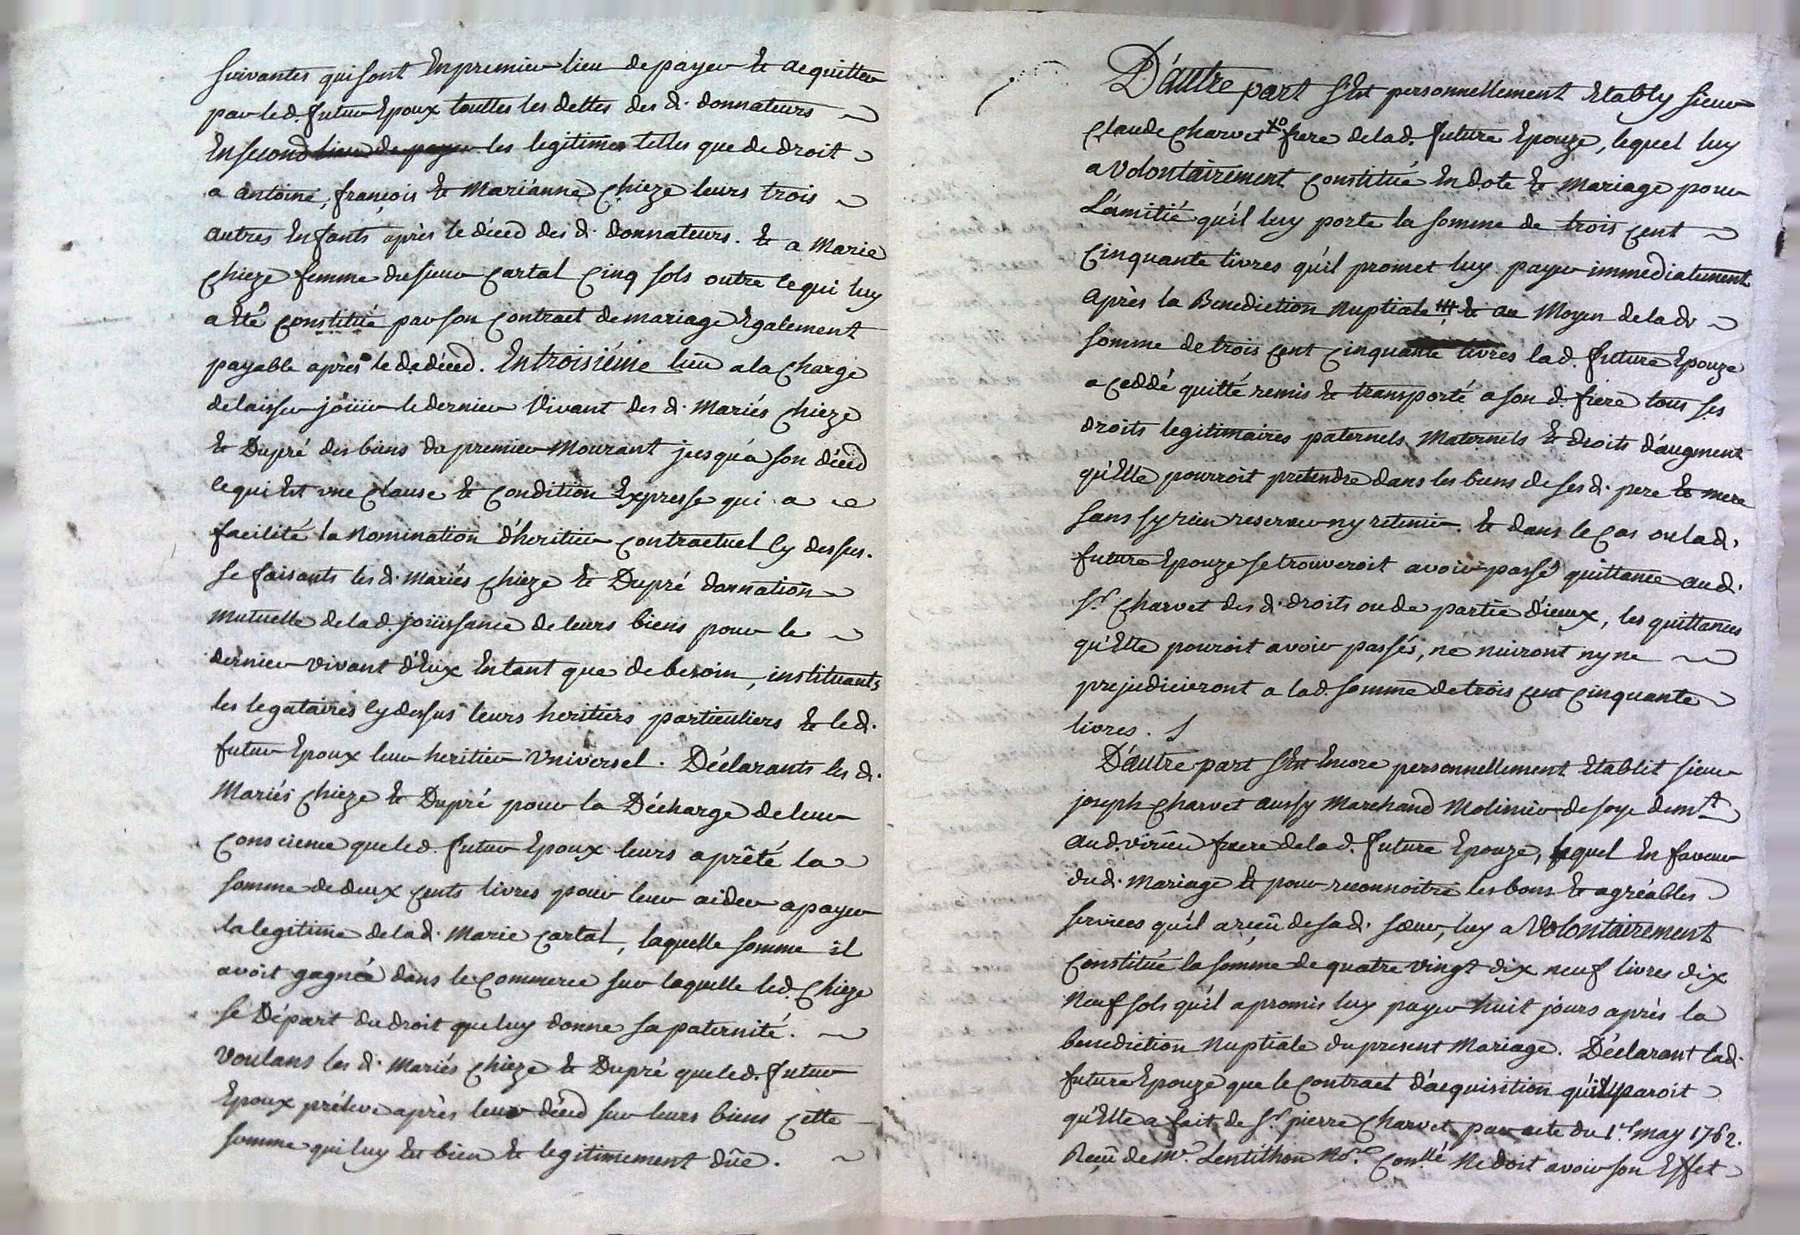 suivantes qui sont En premier lieu de payer Et acquitter
par led. futur Epoux touttes les dettes des d. donnateurs
En second lieu de payer les legitimes telles que de droit
a antoine, francois Et Marianne Chieze leurs trois
autres Enfants après le décéd des d. donnateurs. Et a Marie
Chieze femme du sieur Cartal Cinq sols outre ce qui luy
a Eté Constitué par son Contract de mariage Egalement
payable après le d. décéd. En troisiéme lieu a la Charge
de laisser joüir le dernier Vivant des d. Mariés Chieze
Et Dupré des biens du premier Mourant jusqu'a son décéd
ce qui Est une Clause Et Condition Expresse qui a
facilité la Nomination d'heritier Contractuel Cy dessus.
se faisants les d. Mariés Chieze Et Dupré donnation
Mutuelle de lad. joüissance de leurs biens pour le
dernier vivant d'Eux En tant que de besoin, instituants
les legataires Cy dessus leurs heritiers particuliers Et le d.
futur Epoux leur heritier Vniversel. Déclarants les d.
Mariés Chieze Et Dupré pour la Décharge de leur
Conscience que led. futur Epoux leurs a prêté la
somme de deux cents livres pour leur aider a payer
la legitime de lad. Marie Cartal, laquelle somme il
avoit gagnée dans le Commerce sur laquelle led. Chieze
se Départ du droit que luy donne sa paternité.
Voulans les d. Mariés Chieze Et Dupré que led. futur
Epoux préleve après leur décéd sur leurs biens Cette
somme qui luy Est bien Et legitimement dûe.
D'autre part s'Est personnellement Etably sieur
Claude Charvet frere de lad. future Epouze, lequel luy
a Volontairement Constitué En dote Et Mariage pour
L'amitié qu'il luy porte la somme de trois Cent
Cinquante livres qu'il promet luy payer immediatement
Après la Benediction Nuptiale Et au Moyen de lad.
somme de trois Cent Cinquante livres lad. future Epouze
a Ceddé quitté remis Et transporté a son d. frere tous ses
droits legitimaires paternels Maternels Et droits d'augment
qu'Elle pourroit pretendre dans les biens de ses d. pere Et mere
sans s'y rien reserver ny retenir. Et dans le Cas ou lad.
future Epouze se trouveroit avoir passé quittance aud.
Sr. Charvet des d. droits ou de partie d'iceux, les quittances
qu'Elle pouroit avoir passés, ne nuiront ny ne
prejudicieront a lad. somme de trois Cent Cinquante
livres.
D'autre part s'Est Encore personnellement Etablit sieur
joseph Charvet aussy Marchand Molinier de soye demt
aud. virieu frere de lad. future Epouze, lequel En faveur
dud. Mariage Et pour reconnoitre les bons Et agréables
services qu'il a reçû de sad. sœur, luy a Volontairement
Constitué la somme de quatre Vingt dix neuf livres dix
Neuf sols qu'il a promis luy payer huit jours après la
benediction Nuptiale du present Mariage. Déclarant lad.
future Epouze que le Contract d'acquisition qu'il paroit
qu'Elle a fait de Sr. pierre Charvet par acte du 1er may 1762.
Reçû de Me. Lentillon Nore. Conllé Ne doit avoir son Effet